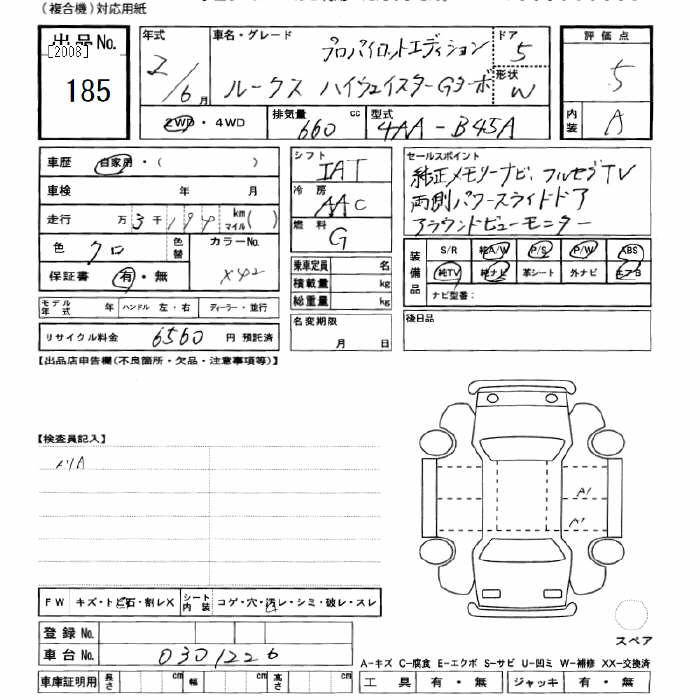 (複合機)対応用紙
出品No.
[2008]
185
年式
2/6月
車名・グレード
プロパイロットエディション
ルークス ハイウェイスターGターボ
ドア
5
形状
W
評価点
5
内装
A
2WD・4WD
排気量
660 cc
型式
4AA-B45A
車歴 自家用・( )
車検 年 月
走行 万 3千194 km マイル( )
色 クロ
色替
カラーNo.
X42
保証書 有・無
モデル年式 年 ハンドル 左・右 ディーラー・並行
リサイクル料金 6560 円 預託済
シフト
IAT
冷房
AAC
燃料
G
乗車定員 名
積載量 kg
総重量 kg
名変期限
月 日
セールスポイント
純正メモリーナビ、フルセグTV
両側パワースライドドア
アラウンドビューモニター
装備品
S/R 純A/W P/S P/W ABS
純TV 純ナビ 革シート 外ナビ エアB
ナビ型番:
後日品
【出品店申告欄(不良箇所・欠品・注意事項等)】
【検査員記入】
A1
A1
FW キズ・トビ石・割レX シート内装 コゲ・穴・汚レ・シミ・破レ・スレ
登録No.
車台No. 0301226
車庫証明用 長さ cm 幅 cm 高さ cm
スペア
A-キズ C-腐食 E-エクボ S-サビ U-凹ミ W-補修 XX-交換済
工具 有・無 ジャッキ 有・無